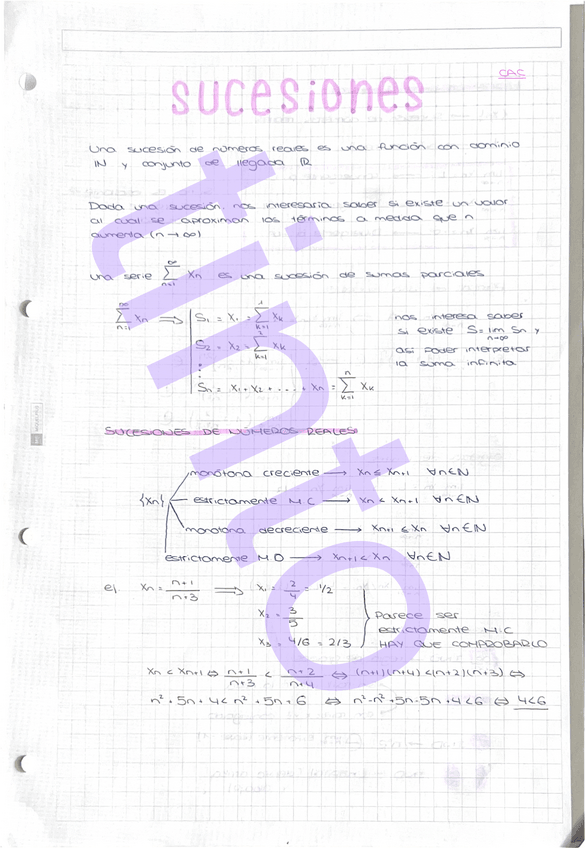 CAC
sucesiones
Una sucesión de números reales es una función con dominio
IN y conjunto de llegada IR
Dada una sucesión, nos interesaría saber si existe un valor
al cual se aproximan los términos a medida que n
aumenta (n → ∞)
una serie ∑_{n=1}^{∞} Xn es una sucesión de sumas parciales
∑_{n=1}^{∞} Xn ⟹ S₁ = X₁ = ∑_{k=1}^{1} Xk
S₂ = X₂ = ∑_{k=1}^{2} Xk
⋮
Sn = X₁ + X₂ + .... + Xn = ∑_{k=1}^{n} Xk
nos interesa saber
si existe S = lim_{n→∞} Sn y
así poder interpretar
la suma infinita
SUCESIONES DE NÚMEROS REALES
{Xn}
monótona creciente → Xn ≤ Xn+1 ∀n∈N
estrictamente M.C → Xn < Xn+1 ∀n∈N
monótona decreciente → Xn+1 ≤ Xn ∀n∈N
estrictamente M.D → Xn+1 < Xn ∀n∈N
ej Xn = (n+1)/(n+3) ⟹ X₁ = 2/4 = 1/2
X₂ = 3/5
X₃ = 4/6 = 2/3
Parece ser
estrictamente M.C
HAY QUE COMPROBARLO
Xn < Xn+1 ⇔ (n+1)/(n+3) < (n+2)/(n+4) ⇔ (n+1)(n+4) < (n+2)(n+3) ⇔
n² + 5n + 4 < n² + 5n + 6 ⇔ n² - n² + 5n - 5n + 4 < 6 ⇔ 4 < 6